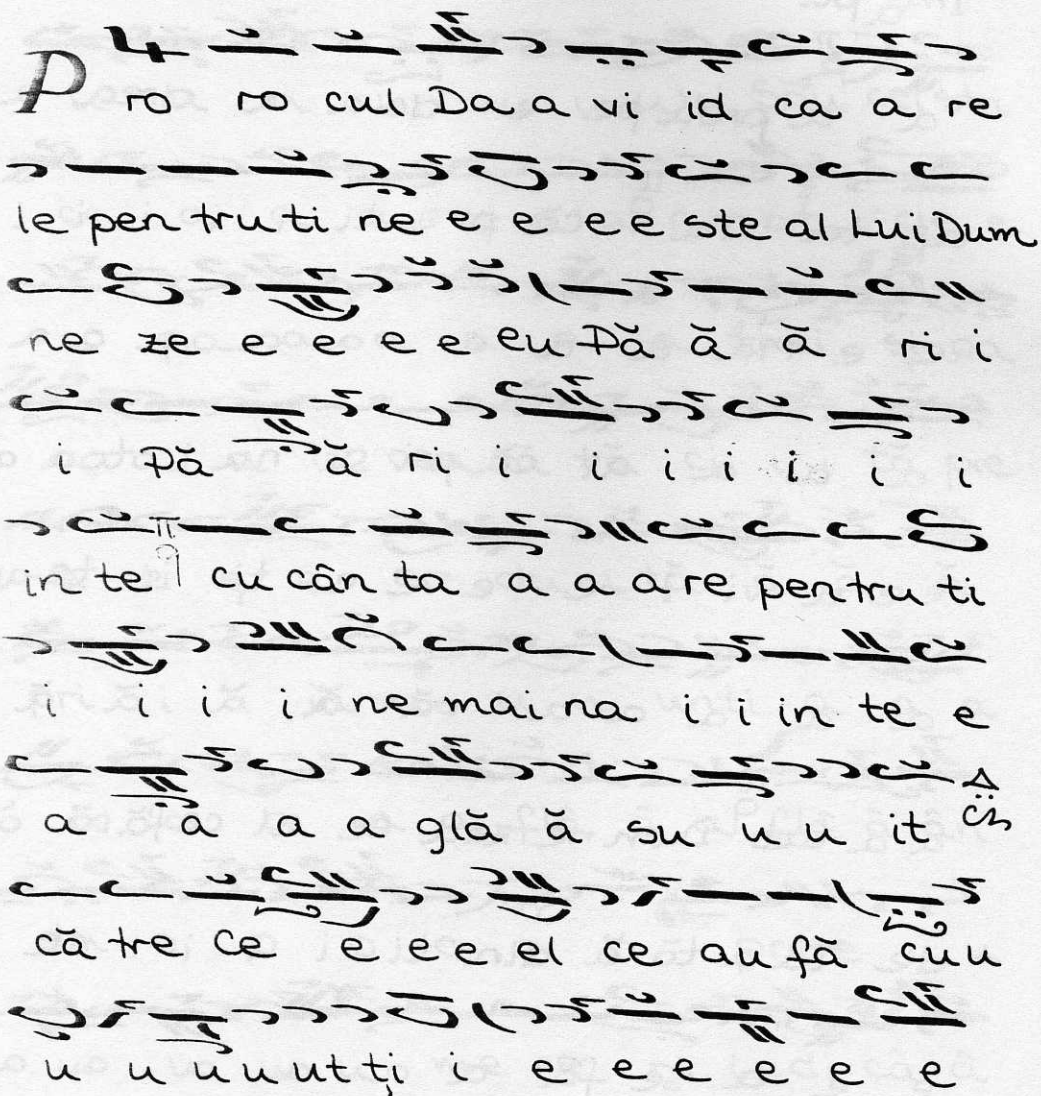 Pro ro cul Da a vi id ca a re
le pen tru ti ne e e e e ste al Lui Dum
ne ze e e e e eu Pă ă ă ri i
i Pă ă ri i i i i i i i
in te cu cân ta a a are pen tru ti
i i i i ne mai na i i in te e
a a a a glă ă su u u it
că tre ce e e e el ce au fă cu u
u u u u ut ţi i e e e e e e